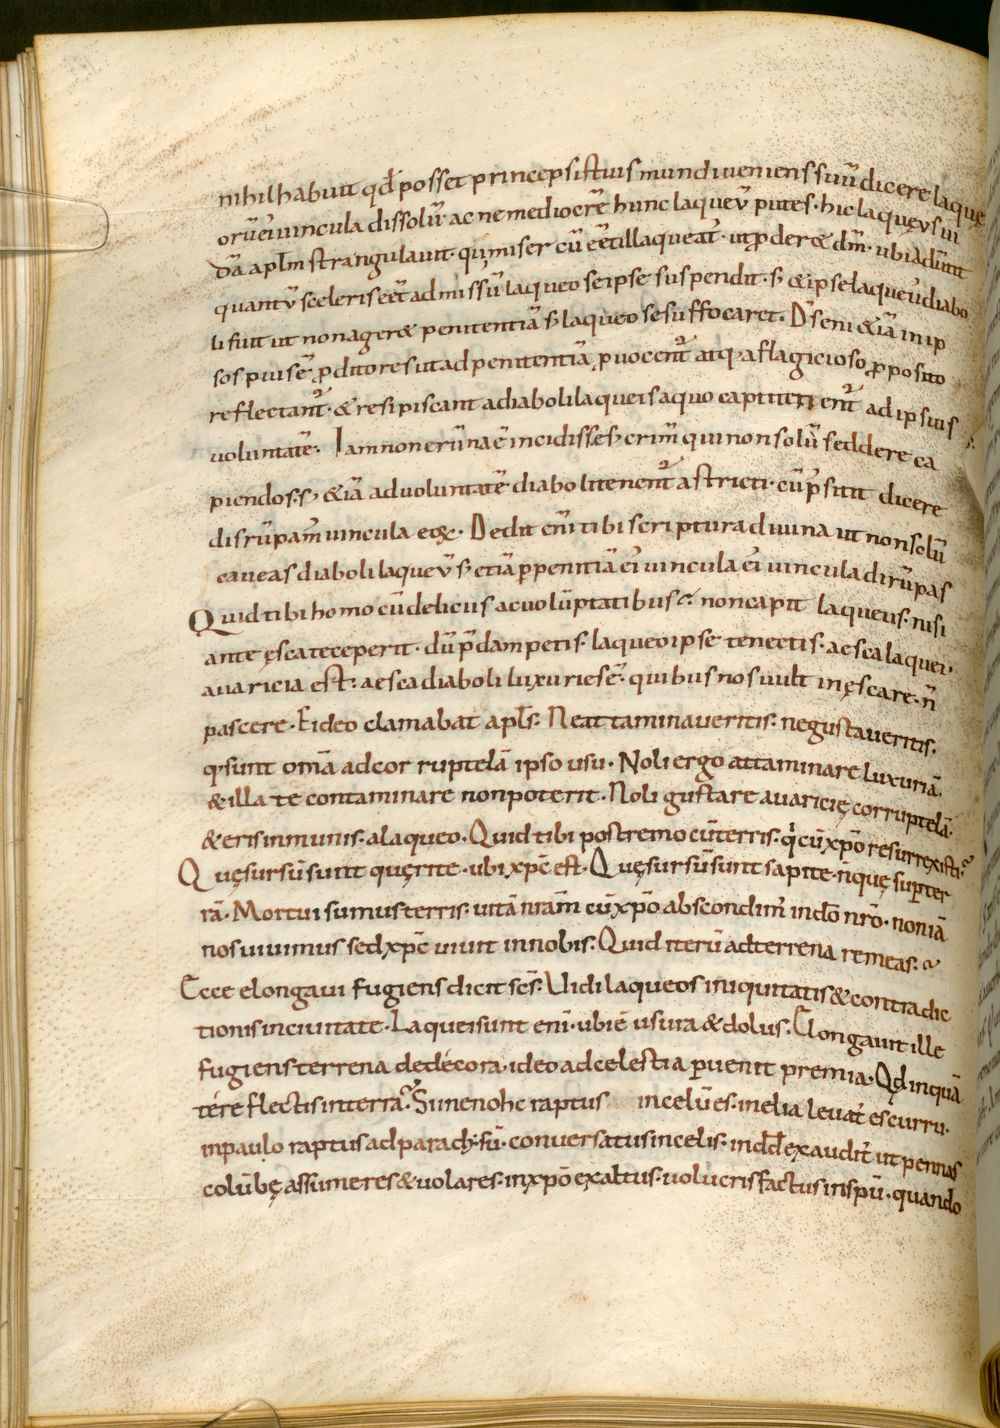 nihil habuit qđ posset princeps istius mundi veniens suū dicere laque
orū ei vincula dissolū. ac ne mediocrē hunc laqueū putes. hic laqueus iu
dā aplm strangulavit. qui miser cū eēt illaqueat'. ut pderet dm̄. ubi advertit
quantū sceleris eēt admissū laqueo se ipse suspendit. s; & ipse laque' diabo
li fuit ut non ageret penitentiā s; laqueo se suffocaret. D's eni & iā in ip
sos pius ē. pditores ut ad penitentiā pvocent' atq; a flagicioso pposito
reflectant'. & resipiscant a diaboli laqueis a quo captiti enent' ad ipsius
voluntatē. Iam non erunae incidisse s; crim̄ qui non solū seddere ca
piendos. s; & iā ad voluntatē diaboli tenent' astricti. cū psitit dicere
disrūpam' vincula eoꝝ. Dedit eni tibi scriptura divina ut non solū
caveas diaboli laqueū s; etiā p penitiā ei' vincula ei' vincula dirūpas
Quid tibi homo cū deliciis ac volūptatibus. non capit laqueus. nisi
ante ęsca te ceperit. dū pdam petis. laqueo ipse tenectis. aesca laquei.
avaricia est. aesca diaboli luxuries ē. quibus nos vult inęscare. n̄
pascere. Et ideo clamabat apl's. Ne attaminaveritis. ne gustaveritis.
q; sunt om̄a ad corruptelā ipso usu. Noli ergo attaminare luxuriā.
& illa te contaminare non poterit. Noli gustare avaricię corruptelā.
& eris inmunis. a laqueo. Quid tibi postremo cū terris. q̊ cū xp̄o resurrexisti.
Quę sursū sunt quęrite. ubi xp̄c est. Quę sursū sunt sapite. n̄ quę sup ter
rā. Mortui sumus terris. vitā nr̄am cū xp̄o abscondim' in dō nr̄o. non iā
nos vivimus sed xp̄c vivit in nobis. Quid iterū ad terrena remeas.
Ecce elongavi fugiens dicit sc̄s. Vidi laqueos iniquitatis & contradic
tionis in civitate. Laquei sunt eni. ubi ē usura & dolus. Elongavit ille
fugiens terrena dedecora. ideo ad celestia pvenit premia. Qd inquā
te reflectis in terrā. Sun enohc raptus in celū es. in elia levat' es curru.
in paulo raptus ad paradisū. conversatus in celis. in dđ exaudit' ut pennas
colūbę assumeres & volares. in xp̄o exaltus. volucris factus in spū. quando